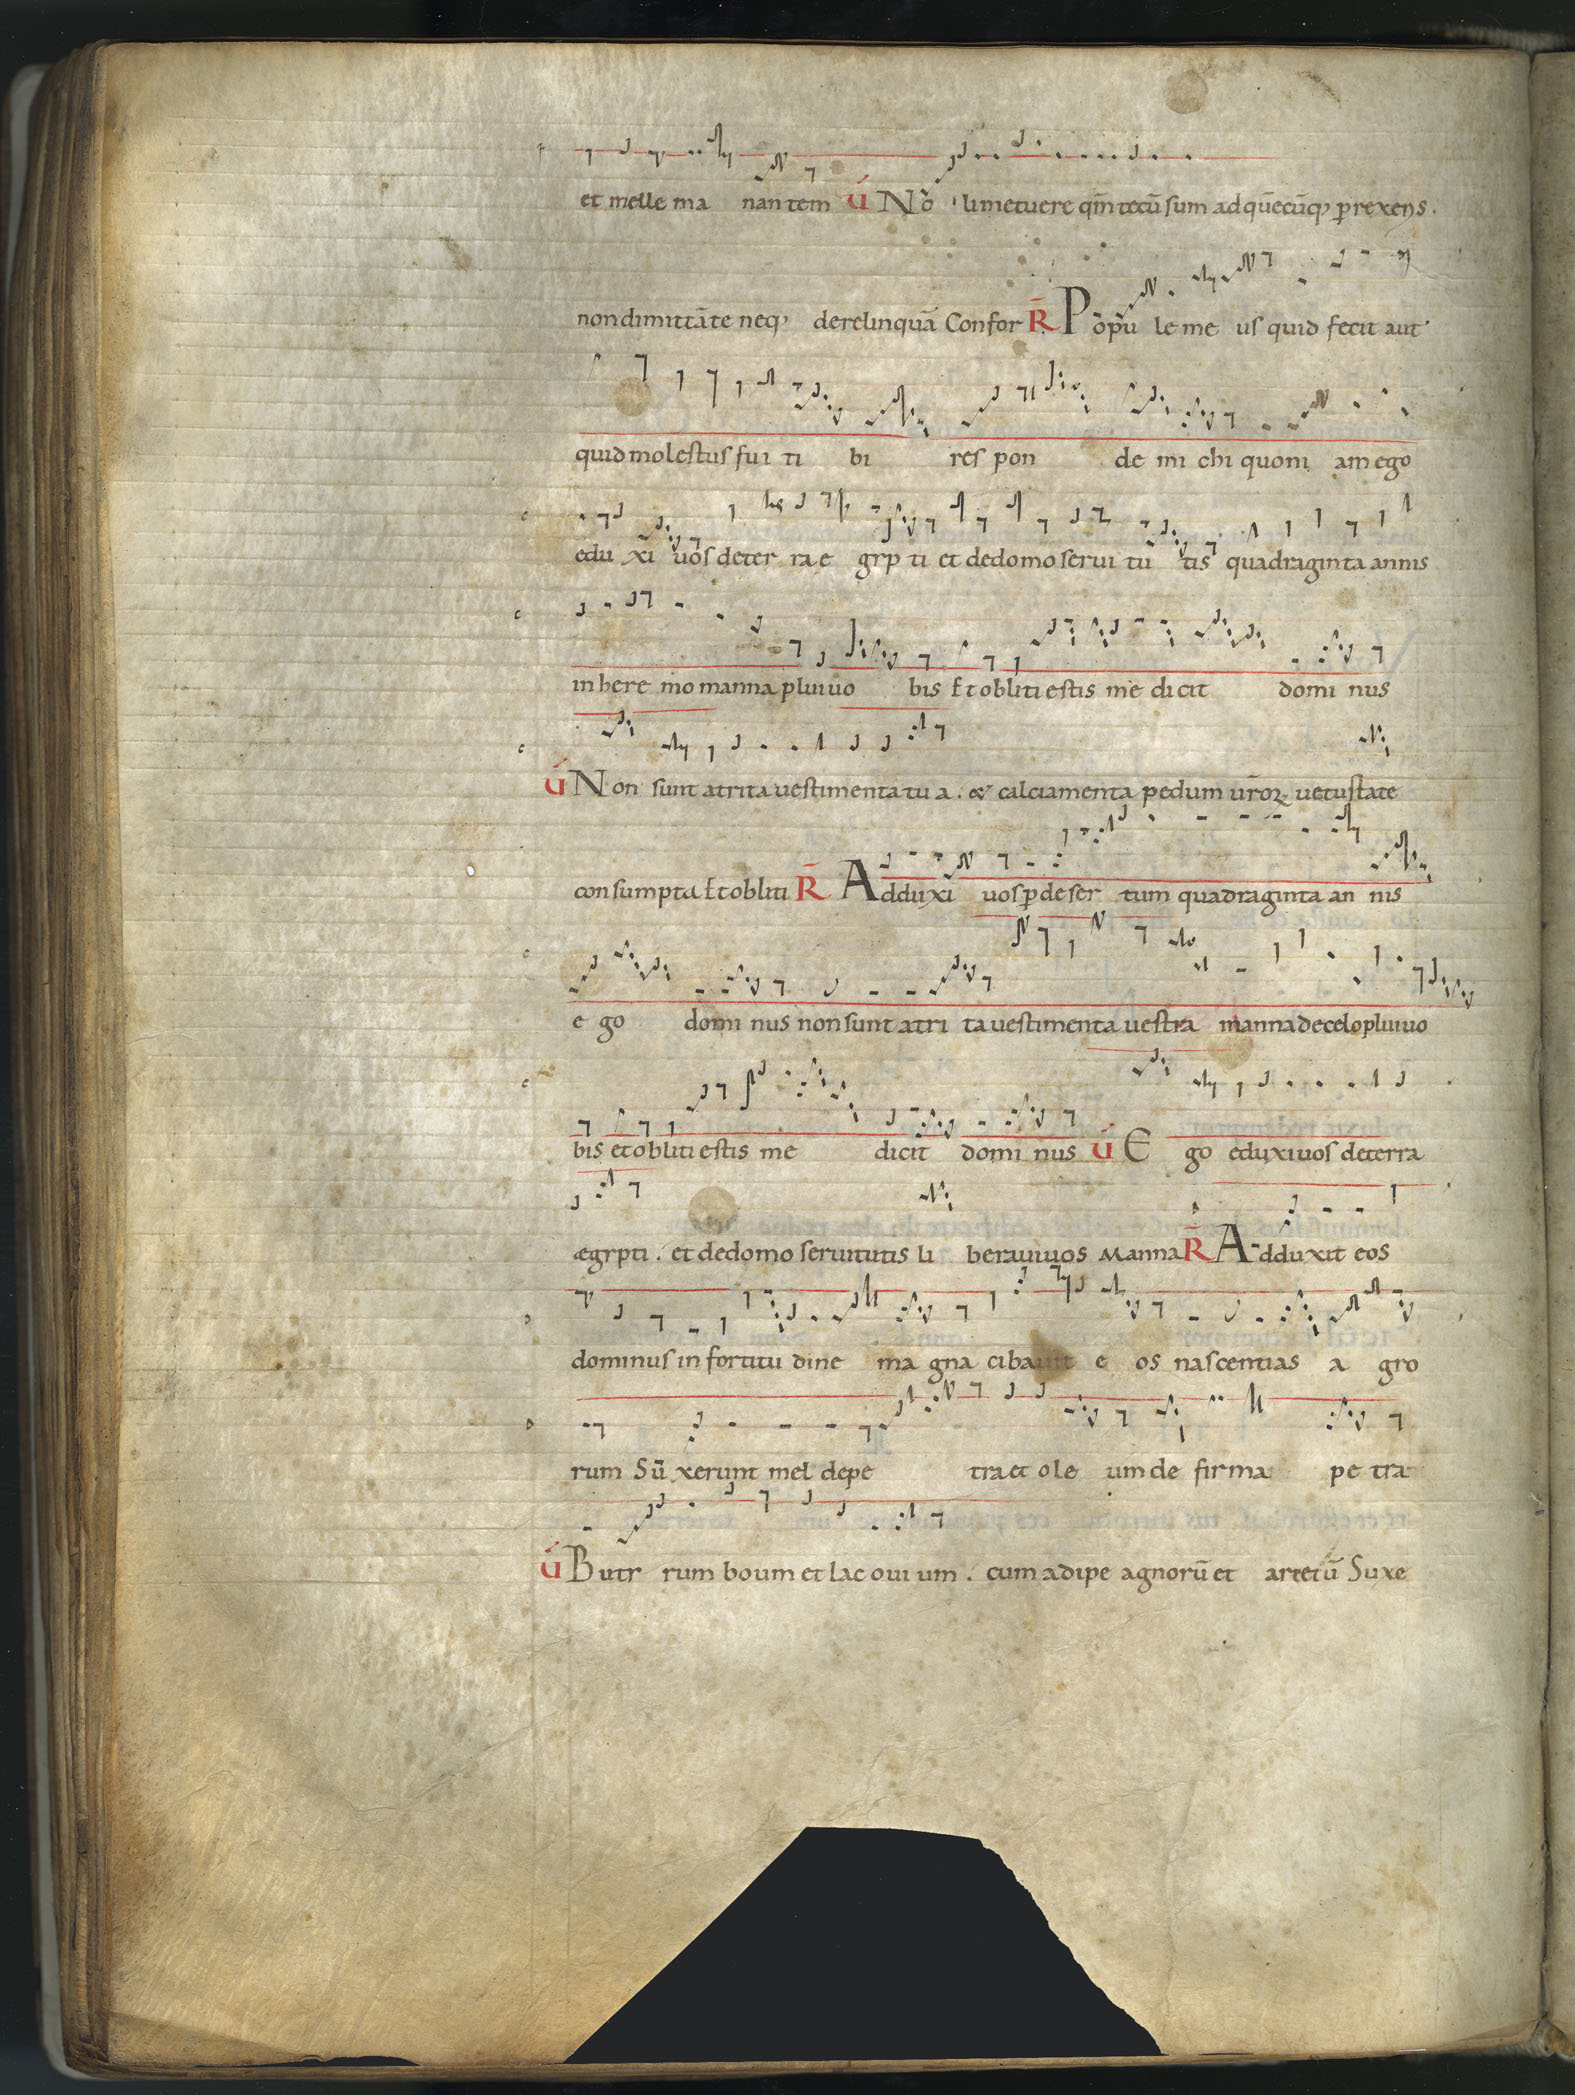 et melle ma nantem V́ No li metuere qm̄ tecū sum ad quēcūq; ꝑrexeris.
non dimittā te neq; derelinquā Confor R̄ Popu le me us quid feci aut
quid molestus fui ti bi res pon de mi chi quoni am ego
edu xi uos de ter ra e gyp ti et de domo serui tu tis quadraginta annis
in here mo manna plui uo bis Et obliti estis me dicit domi nus
V́ Non sunt atrita uestimenta tu a. & calciamenta pedum ur̄oꝝ uetustate
consumpta Et obliti R̄ Adduxi uos ꝑ deser tum quadraginta an nis
e go domi nus non sunt atri ta uestimenta uestra manna de celo plui uo
bis et obliti estis me dicit domi nus V́ E go eduxi uos de terra
ægypti. et de domo seruitutis li beraui uos Manna R̄ Adduxit eos
dominus in fortitu dine ma gna cibauit e os nascentias a gro
rum Su xerunt mel de pe tra et ole um de firma pe tra
V́ Buty rum boum et lac oui um. cum adipe agnorū et arietū Suxe